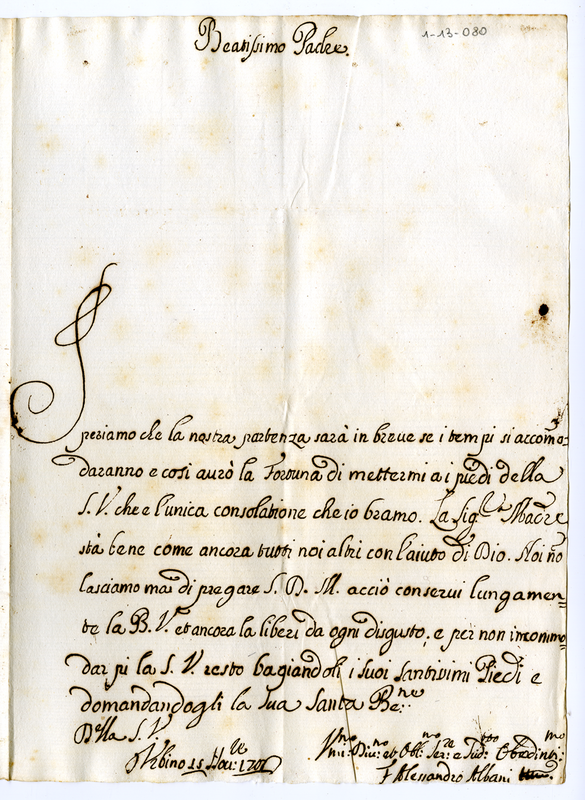 Beatissimo Padre.
1-13-080
Speriamo che la nostra partenza sarà in breve se i tempi si accomo=
daranno e così aurò la Fortuna di mettermi a i piedi della
S. V. che e l'unica consolatione che io bramo. La Sig.ra Madre
stà bene come ancora tutti noi altri con l'aiuto di Dio. Noi nō
lasciamo mai di pregare S. D. M. acciò conserui lungamen=
te la B. V. et ancora la liberi da ogni disgusto, e per non incommo=
dar pi la S. V. resto bagiandoli i suoi santissimi Piedi e
domandandogli la sua Santa Be.ne
D'lla S. V.
Vrbino 15 Nou.
Vmo Diuno et Obl.no Ser.re e Sud.to Obedinti.mo
Alessandro Albani